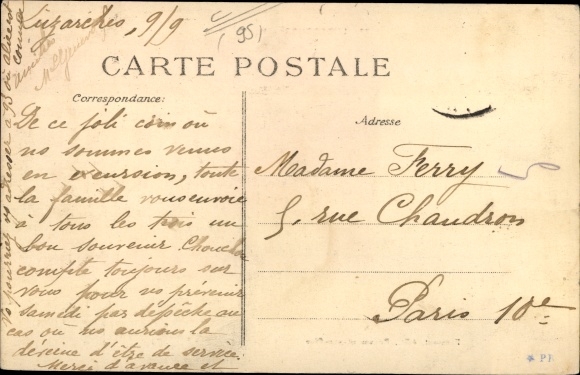 Luzarches, 9/9
(95)
CARTE POSTALE
Correspondance:
Adresse
De ce joli coin où
ns sommes venus
en excursion, toute
la famille vous envoie
à tous les trois un
bon souvenir. Chouchou
compte toujours sur
vous pour ns prévenir
samedi par dépêche au
cas où ns aurions la
déveine d'être de service
Merci d'avance et
amitiés
Madame Ferry
5, rue Chaudron
Paris 10e